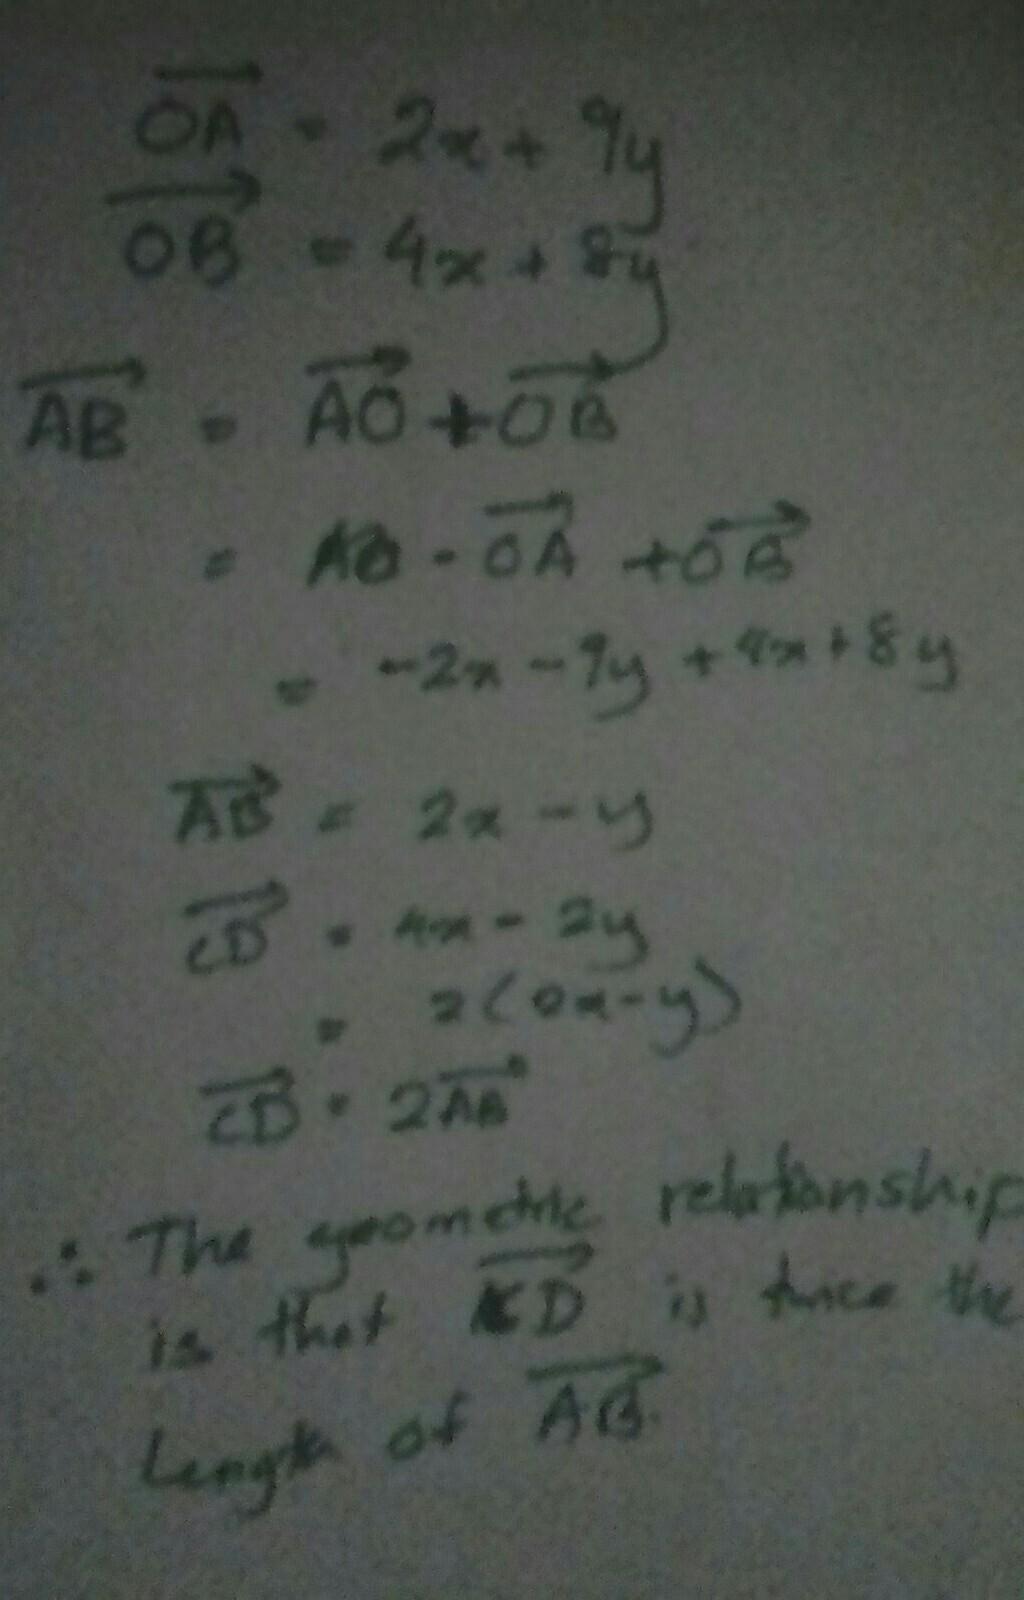 OA = 2x + 9y
OB = 4x + 8y
AB = AO + OB
= AO - OA + OB
= -2x - 9y + 4x + 8y
AB = 2x - y
CD = 4x - 2y
= 2(2x-y)
CD = 2AB
∴ The geometric relationship
is that CD is twice the
Length of AB.